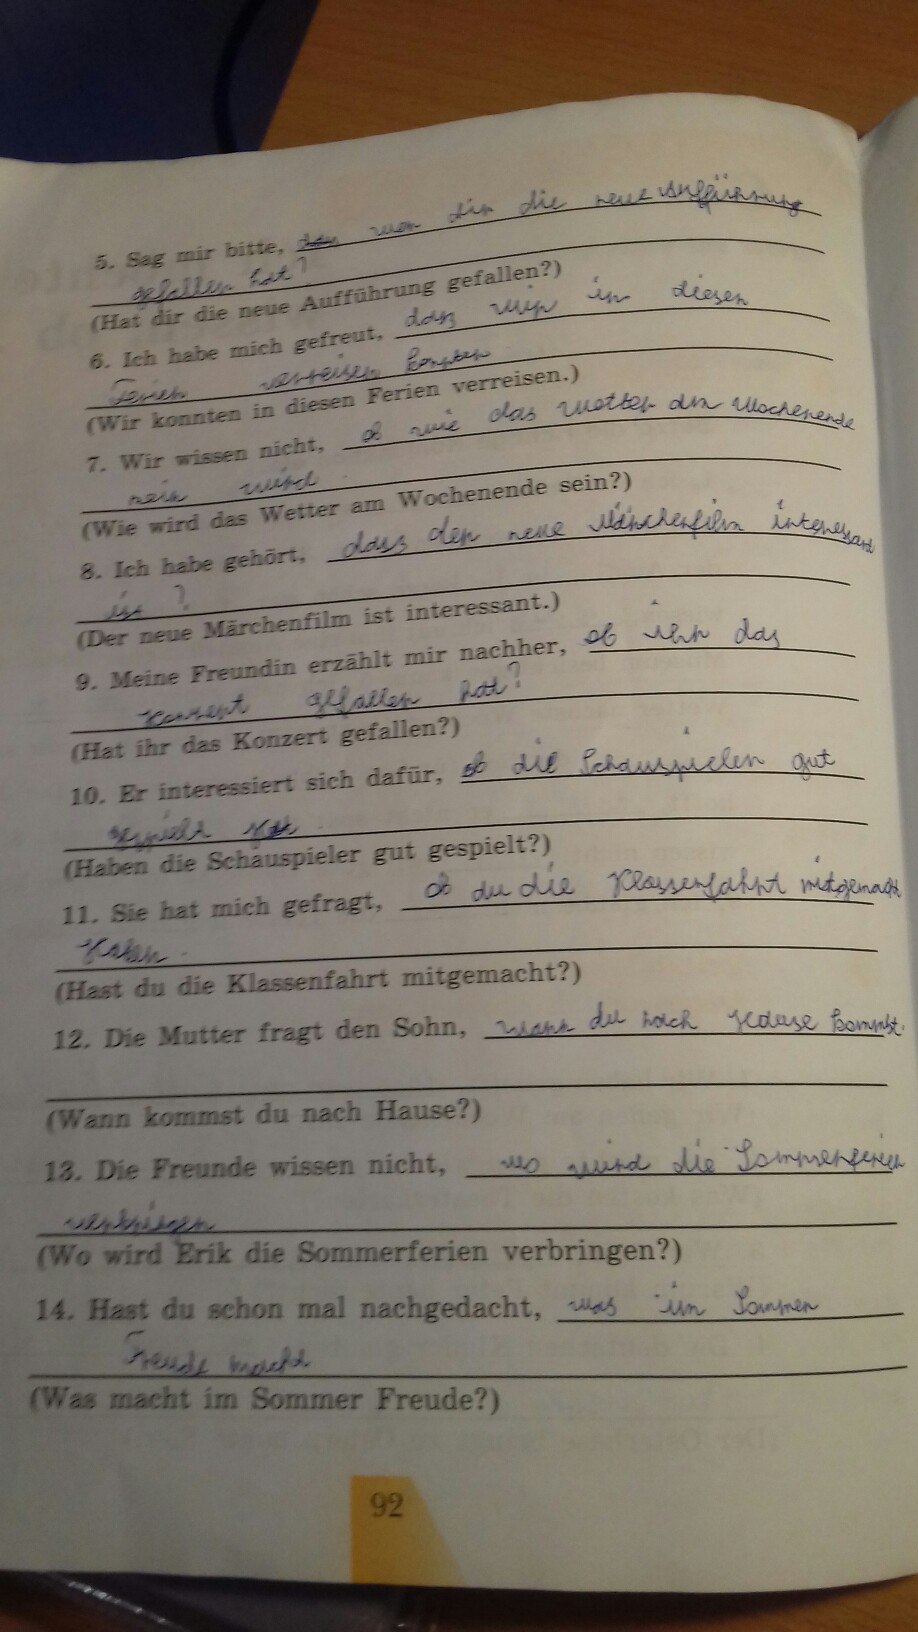 5. Sag mir bitte, dir die neue Aufführung
gefallen hat?
(Hat dir die neue Aufführung gefallen?)
6. Ich habe mich gefreut, dass wir in diesen
Ferien verreisen konnten
(Wir konnten in diesen Ferien verreisen.)
7. Wir wissen nicht, ob wie das Wetter am Wochenende
sein wird.
(Wie wird das Wetter am Wochenende sein?)
8. Ich habe gehört, dass der neue Märchenfilm interessant
ist?
(Der neue Märchenfilm ist interessant.)
9. Meine Freundin erzählt mir nachher, ob ihr das
Konzert gefallen hat?
(Hat ihr das Konzert gefallen?)
10. Er interessiert sich dafür, ob die Schauspieler gut
gespielt hat.
(Haben die Schauspieler gut gespielt?)
11. Sie hat mich gefragt, ob du die Klassenfahrt mitgemacht
haben.
(Hast du die Klassenfahrt mitgemacht?)
12. Die Mutter fragt den Sohn, wann du nach Hause kommst.
(Wann kommst du nach Hause?)
13. Die Freunde wissen nicht, wo wird die Sommerferien
verbringen
(Wo wird Erik die Sommerferien verbringen?)
14. Hast du schon mal nachgedacht, was im Sommer
Freude macht
(Was macht im Sommer Freude?)
92